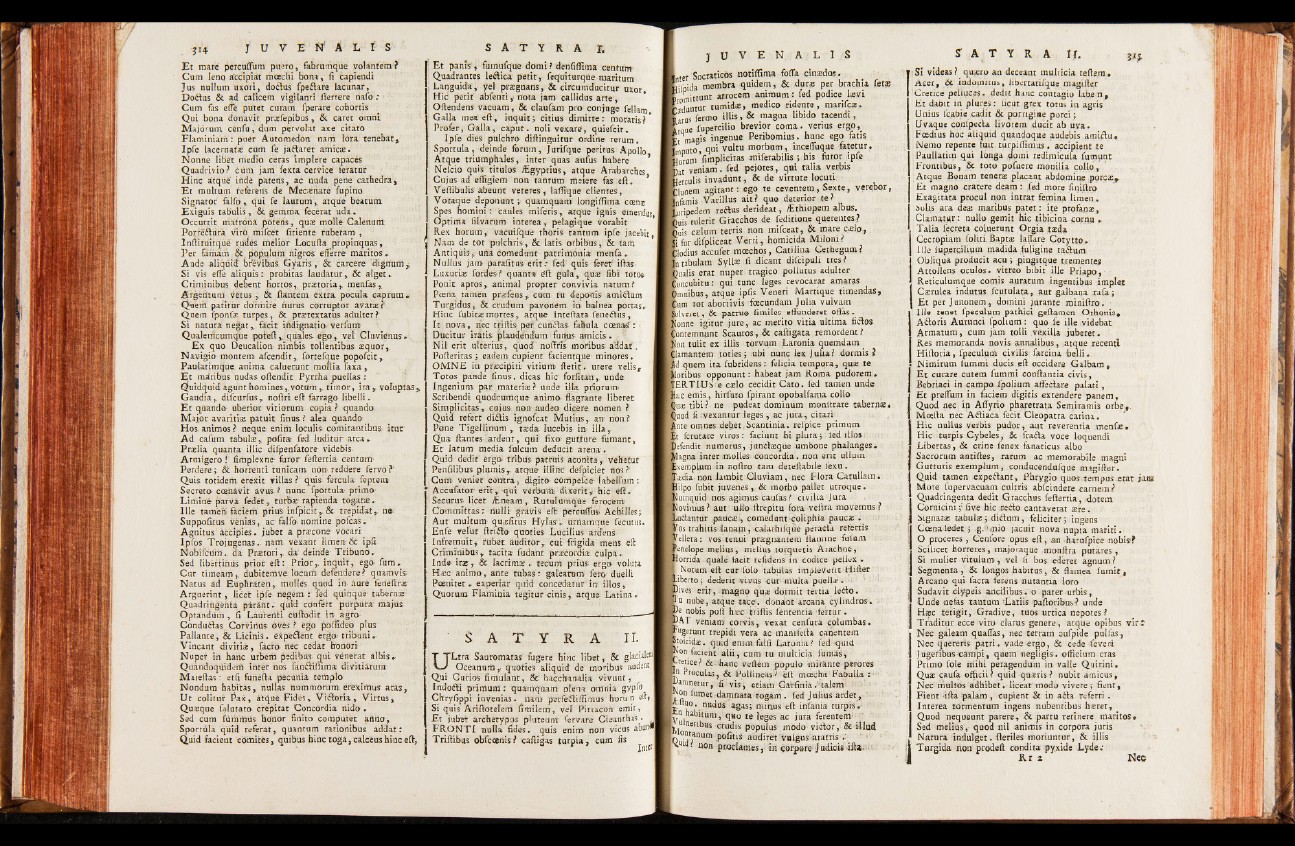 314 JUVENALIS
Et mare percussum puero, fabrumque volantem?
Cum leno accipiat mœchi bona, si capiendi
Jus nullum uxori, doctus spectare lacunar,
Doctus & ad calicem vigilanti stertere naso:
Cum fas esse putet curam sperare cohortis
Qui bona donavit præsepibus, & caret omni
Majorum censu, dum pervolat axe citato
Flaminiam: puer Automedon nam lora tenebat,
Ipse lacernatæ cum se jactaret amicæ.
Nonne libet medio ceras implere capaces
Quadrivio? cum jam sexta cervice feratur
Hinc atque inde patens, ac nuda pene cathedra,
Et multum referens de Mecænate supino
Signator falso, qui se lautum, atque beatum
Exiguis tabulis, & gemma fecerat uda.
Occurrit matrona potens, quæ molle Calenum
Porrectura viro miscet sitiente rubetam,
Instituitque rudes melior Locusta propinquas,
Per famam & populum nigros efferre maritos.
Aude aliquid brevibus Gyaris, & carcere dignum,
Si vis esse aliquis: probitas laudatur, & alget.
Criminibus debent hortos, prætoria, mensas,
Argentum vetus, & stantem extra pocula caprum.
Quem patitur dormire nurus corruptor avaræ?
Quem sponsæ turpes, & prætextatus adulter?
Si natura negat, facit indignatio versum
Qualemcumque potest, quales ego, vel Cluvienus.
Ex quo Deucalion nimbis tollentibus æquor,
Navigio montem ascendit, sortesque poposcit,
Paulatimque anima caluerunt mollia saxa,
Et maribus nudas ostendit Pyrrha puellas:
Quidquid agunt homines, votum, timor, ira, voluptas,
Gaudia, discursus, nostri est farrago libelli.
Et quando uberior vitiorum copia? quando
Major avaritiæ patuit sinus? alea quando
Hos animos? neque enim loculis comitantibus itur
Ad casum tabulæ, posita sed luditur arca.
Prælia quanta illic dispensatore videbis
Armigero! simplexne furor sestertia centum
Perdere; & horrenti tunicam non reddere servo?
Quis totidem erexit villas? quis fercula septem
Secreto cœnavit avus? nunc sportula primo
Limine parva sedet, turbæ rapienda togatæ.
Ille tamen faciem prius inspicit, & trepidat, ne
Suppositus venias, ac falso nomine poscas.
Agnitus accipies. jubet a præcone vocari
Ipsos Trojugenas. nam vexant limen & ipsi
Nobiscum. da Prætori, da deinde Tribuno.
Sed libertinus prior est: Prior, inquit, ego sum.
Cur timeam, dubitemve locum defendere? quamvis
Natus ad Euphraten, molles quod in aure fenestræ
Arguerint, licet ipse negem: sed quinque tabernæ
Quadringenta parant. quid confert purpura majus
Optandum, si Laurenti custodit in agro
Conductas Corvinus oves? ego possideo plus
Pallante, & Licinis. expectent ergo tribuni.
Vincant divitiæ, sacro nec cedat honori
Nuper in hanc urbem pedibus qui venerat albis.
Quandoquidem inter nos sanctissima divitiarum
Majestas: etsi funesta pecunia templo
Nondum habitas, nullas nummorum ereximus aras,
Ut colitur Pax, atque Fides, Victoria, Virtus,
Quæque salutato crepitat Concordia nido.
Sed cum summus honor finito computet anno,
Sportula quid referat, quantum rationibus addat:
Quid facient comites, quibus hinc toga, calceus hinc est,
SATYRA I.
Et panis, fumusque domi? densissima centum
Quadrantes lectica petit, sequiturque maritum
Languida, vel prægnans, & circumducitur uxor.
Hic petit absenti, nota jam callidus arte,
Ostendens vacuam, & clausam pro conjuge sellam.
Galla mea est, inquit; citius dimitte: moraris?
Profer, Galla, caput. noli vexare, quiescit.
Ipse dies pulchro distinguitur ordine rerum.
Sportula, deinde forum, Jurisque peritus Apollo,
Atque triumphales, inter quas ausus habere
Nescio quis titulos Ægyptius, atque Arabarches,
Cujus ad effigiem non tantum meiere fas est.
Vestibulis abeunt veteres, lassique clientes,
Votaque deponunt; quamquam longissima cœnæ
Spes homini: caules miseris, atque ignis emendus,
Optima silvarum interea, pelagique vorabit
Rex horum, vacuisque thoris tantum ipse jacebit,
Nam de tot pulchris, & latis orbibus, & tam
Antiquis, una comedunt patrimonia mensa.
Nullus jam parasitus erit: sed quis feret istas
Luxuriæ sordes? quanta est gula, quæ sibi totos
Ponit apros, animal propter convivia natum?
Pœna tamen præsens, cum tu deponis amictum
Turgidus, & crudum pavonem in balnea portas.
Hinc subitæ mortes, atque intestata senectus,
It nova, nec tristis per cunctas fabula cœnas:
Ducitur iratis plaudendum funus amicis.
Nil erit ulterius, quod nostris moribus addat
Posteritas; eadem cupient facientque minores.
OMNE in præcipiti vitium stetit. utere velis,
Totos pande sinus. dicas hic forsitan, unde
Ingenium par materiæ? unde illa priorum
Scribendi quodcumque animo flagrante liberet
Simplicitas, cujus non audeo dicere nomen?
Quid refert dictis ignoscat Mutius, an non?
Pone Tigellinum, tæda lucebis in illa,
Qua stantes ardent, qui fixo gutture fumant,
Et latum media sulcum deducit arena.
Quid dedit ergo tribus patruis aconita, vehetur
Pensilibus plumis, atque illinc despiciet nos?
Cum veniet contra, digito compesce labellum:
Accusator erit, qui verbum dixerit, hic est.
Securus licet Æneam, Rutulumque ferocem
Committas: nulli gravis est percussus Achilles;
Aut multum quæsitus Hylas, urnamque secutus.
Ense velut stricto quoties Lucilius ardens
Infremuit, rubet auditor, cui frigida mens est
Criminibus, tacita sudant præcordia culpa.
Inde iræ, & lacrimæ. tecum prius ergo voluta
Hæc animo, ante tubas: galeatum sero duelli
Pœnitet. experiar quid concedatur in illos,
Quorum Flaminia tegitur cinis, atque Latina.
SATYRA II.
ULtra Sauromatas fugere hinc libet, & glacialem
Oceanum, quoties aliquid de moribus audent
Qui Curios simulant, & bacchanalia vivunt,
Indocti primum: quamquam plena omnia gypso
Chrysippi invenias. nam perfectissimus horum est,
Si quis Aristotelem similem, vel Pittacon emit,
Et jubet archetypos pluteum servare Cleanthas.
FRONTI nulla fides. quis enim non vicus abundat
Tristibus obscœnis? castigas turpia, cum sis
Inter
JUVENALIS
Inter Socraticos notissima fossa cinædos.
Hispida membra quidem, & duræ per brachia setæ
Promittunt atrocem animum: sed podice lævi
Cæduntur tumidæ, medico ridente, mariscæ.
Rarus sermo illis, & magna libido tacendi,
Atque supercilio brevior coma. verius ergo,
Et magis ingenue Peribomius. hunc ego fatis
Imputo, qui vultu morbum, incessuque fatetur.
Horum simplicitas miserabilis; his furor ipse
Dat veniam. sed pejores, qui talia verbis
Herculis invadunt, & de virtute locuti
Clunem agitant: ego te ceventem, Sexte, verebor,
Infamis Varillus ait? quo deterior te?
Loripedem rectus derideat, Æthiopem albus.
Quis tulerit Gracchos de seditione querentes?
Quis cælum terris non misceat, & mare cælo,
Si fur displiceat Verri, homicida Miloni?
Clodius accuset mœchos, Catilina Cethegum?
In tabulam Syllæ si dicant discipuli tres?
Qualis erat nuper tragico pollutus adulter
Concubitu: qui tunc leges revocarat amaras
Omnibus, atque ipsis Veneri Martique timendas,
Cum tot abortivis fœcundam Julia vulvam
Solveret, & patruo similes effunderet offas.
Nonne igitur jure, ac merito vitia ultima fictos
Contemnunt Scauros, & castigata remordent?
Non tulit ex illis torvum Laronia quemdam
Clamantem toties; ubi nunc lex Julia? dormis?
Ad quem ita subridens: felicia tempora, quæ te
Moribus opponunt: habeat jam Roma pudorem.
TERTIUS e cælo cecidit Cato. sed tamen unde
Hæc emis, hirsuto spirant opobalsama collo
Quæ tibi? ne pudeat dominum monstrare tabernæ.
Quod si vexantur leges, ac jura, citari
Ante omnes debet Scantinia. respice primum
Et scrutare viros: faciunt hi plura; sed illos
Defendit numerus, junctæque umbone phalanges.
Magna inter molles concordia. non erit ullum
Exemplum in nostro tam detestabile sexu.
Tædia non lambit Cluviam, nec Flora Catullam.
Hispo subit juvenes, & morbo pallet utroque.
Numquid nos agimus causas? civilia Jura
Novimus? aut ullo strepitu fora vestra movemus?
Luctantur paucæ, comedunt coliphia paucæ.
Vos trahitis lanam, calathisque peracta refertis
Vellera: vos tenui prægnantem stamine fusum
Penelope melius, melius torquetis Arachne,
Horrida quale facit residens in codice pellex.
Notum est cur solo tabulas impleverit Hister
Liberto; dederit vivus cur multa puellæ.
Dives erit, magno quæ dormit tertia lecto.
Tu nube, atque tace. donant arcana cylindros.
De nobis post hæc tristis sententia fertur.
DAT veniam corvis, vexat censura columbas.
Fugerunt trepidi vera ac manifesta canentem
Stoicidæ. quid enim falsi Laronia? sed quid
Non facient alii, cum tu multicia sumas,
Cretice? & hanc vestem populo mirante perores
In Proculas, & Pollineas? est mœcha Fabulla:
Damnetur, si vis, etiam Carfinia. talem
Non sumet damnata togam. sed Julius ardet,
Æstuo. nudus agas; minus est infania turpis.
En habitum, quo te leges ac jura ferentem
Vulneribus crudis populus modo victor, & illud
Montanum positis audiret vulgus aratris.
Quid? non proclames, in corpore Judicis ista
SATYRA II. 315
Si videas? quæro an deceant multicia testem.
Acer, & indomitus, libertatisque magister
Cretice pelluces. dedit hanc contagio labem,
Et dabit in plures: sicut grex totus in agris
Unius scabie cadit & porrigine porci;
Uvaque conspecta livorem ducit ab uva.
Fœdius hoc aliquid quandoque audebis amictu.
Nemo repente fuit turpissimus. accipient te
Paullatim qui longa domi redimicula sumunt
Frontibus, & toto posuere monilia collo,
Atque Bonam teneræ placant abdomine porcæ,
Et magno cratere deam: sed more sinistro
Exagitata procul non intrat femina limen.
Solis ara deæ maribus patet: ite profanæ,
Clamatur: nullo gemit hic tibicina cornu.
Talia secreta coluerunt Orgia tæda
Cecropiam soliti Baptæ lassare Cotytto.
Ille supercilium madida fuligine tactum
Obliqua producit acu; pingitque trementes
Attollens oculos. vitreo bibit ille Priapo,
Reticulumque comis auratum ingentibus implet
Cærulea indutus scutulata, aut galbana rasa;
Et per Junonem, domini jurante ministro.
Ille tenet speculum pathici gestamen Othonis,
Actoris Aurunci spolium: quo se ille videbat
Armatum, cum jam tolli vexilla juberet.
Res memoranda novis annalibus, atque recenti
Historia, speculum civilis sarcina belli.
Nimirum summi ducis est occidere Galbam,
Et curare cutem summi constantia civis,
Bebriaci in campo spolium affectare palati,
Et pressum in faciem digitis extendere panem,
Quod nec in Assyrio pharetrata Semiramis orbe,
Mœsta nec Actiaca fecit Cleopatra carina.
Hic nullus verbis pudor, aut reverentia mensæ.
Hic turpis Cybeles, & fracta voce loquendi
Libertas, & crine senex fanaticus albo
Sacrorum antistes, rarum ac memorabile magni
Gutturis exemplum, conducendusque magister.
Quid tamen expectant, Phrygio quos tempus erat jam
More supervacuam cultris abscindere carnem?
Quadringenta dedit Gracchus sestertia, dotem
Cornicini; sive hic recto cantaverat ære.
Signatæ tabulæ; dictum, feliciter; ingens
Cœna sedet; gremio jacuit nova nupta mariti.
O proceres, Censore opus est, an haruspice nobis?
Scilicet horreres, majoraque monstra putares,
Si mulier vitulum, vel si bos ederet agnum?
Segmenta, & longos habitus, & flamea sumit,
Arcano qui sacra ferens nutantia loro
Sudavit clypeis ancilibus. o pater urbis,
Unde nefas tantum Latiis pastoribus? unde
Hæc tetigit, Gradive, tuos urtica nepotes?
Traditur ecce viro clarus genere, atque opibus vir:
Nec galeam quassas, nec terram cuspide pulsas,
Nec quereris patri. vade ergo, & cede severi
Jugeribus campi, quem negligis. officium cras
Primo sole mihi peragendum in valle Quirini.
Quæ causa officii? quid quæris? nubit amicus,
Nec multos adhibet. liceat modo vivere; fient,
Fient ista palam, cupient & in acta referri.
Interea tormentum ingens nubentibus hæret,
Quod nequeunt parere, & partu retinere maritos.
Sed melius, quod nil animis in corpora juris
Natura indulget. steriles moriuntur, & illis
Turgida non prodest condita pyxide Lyde:
Rr 2 Nec